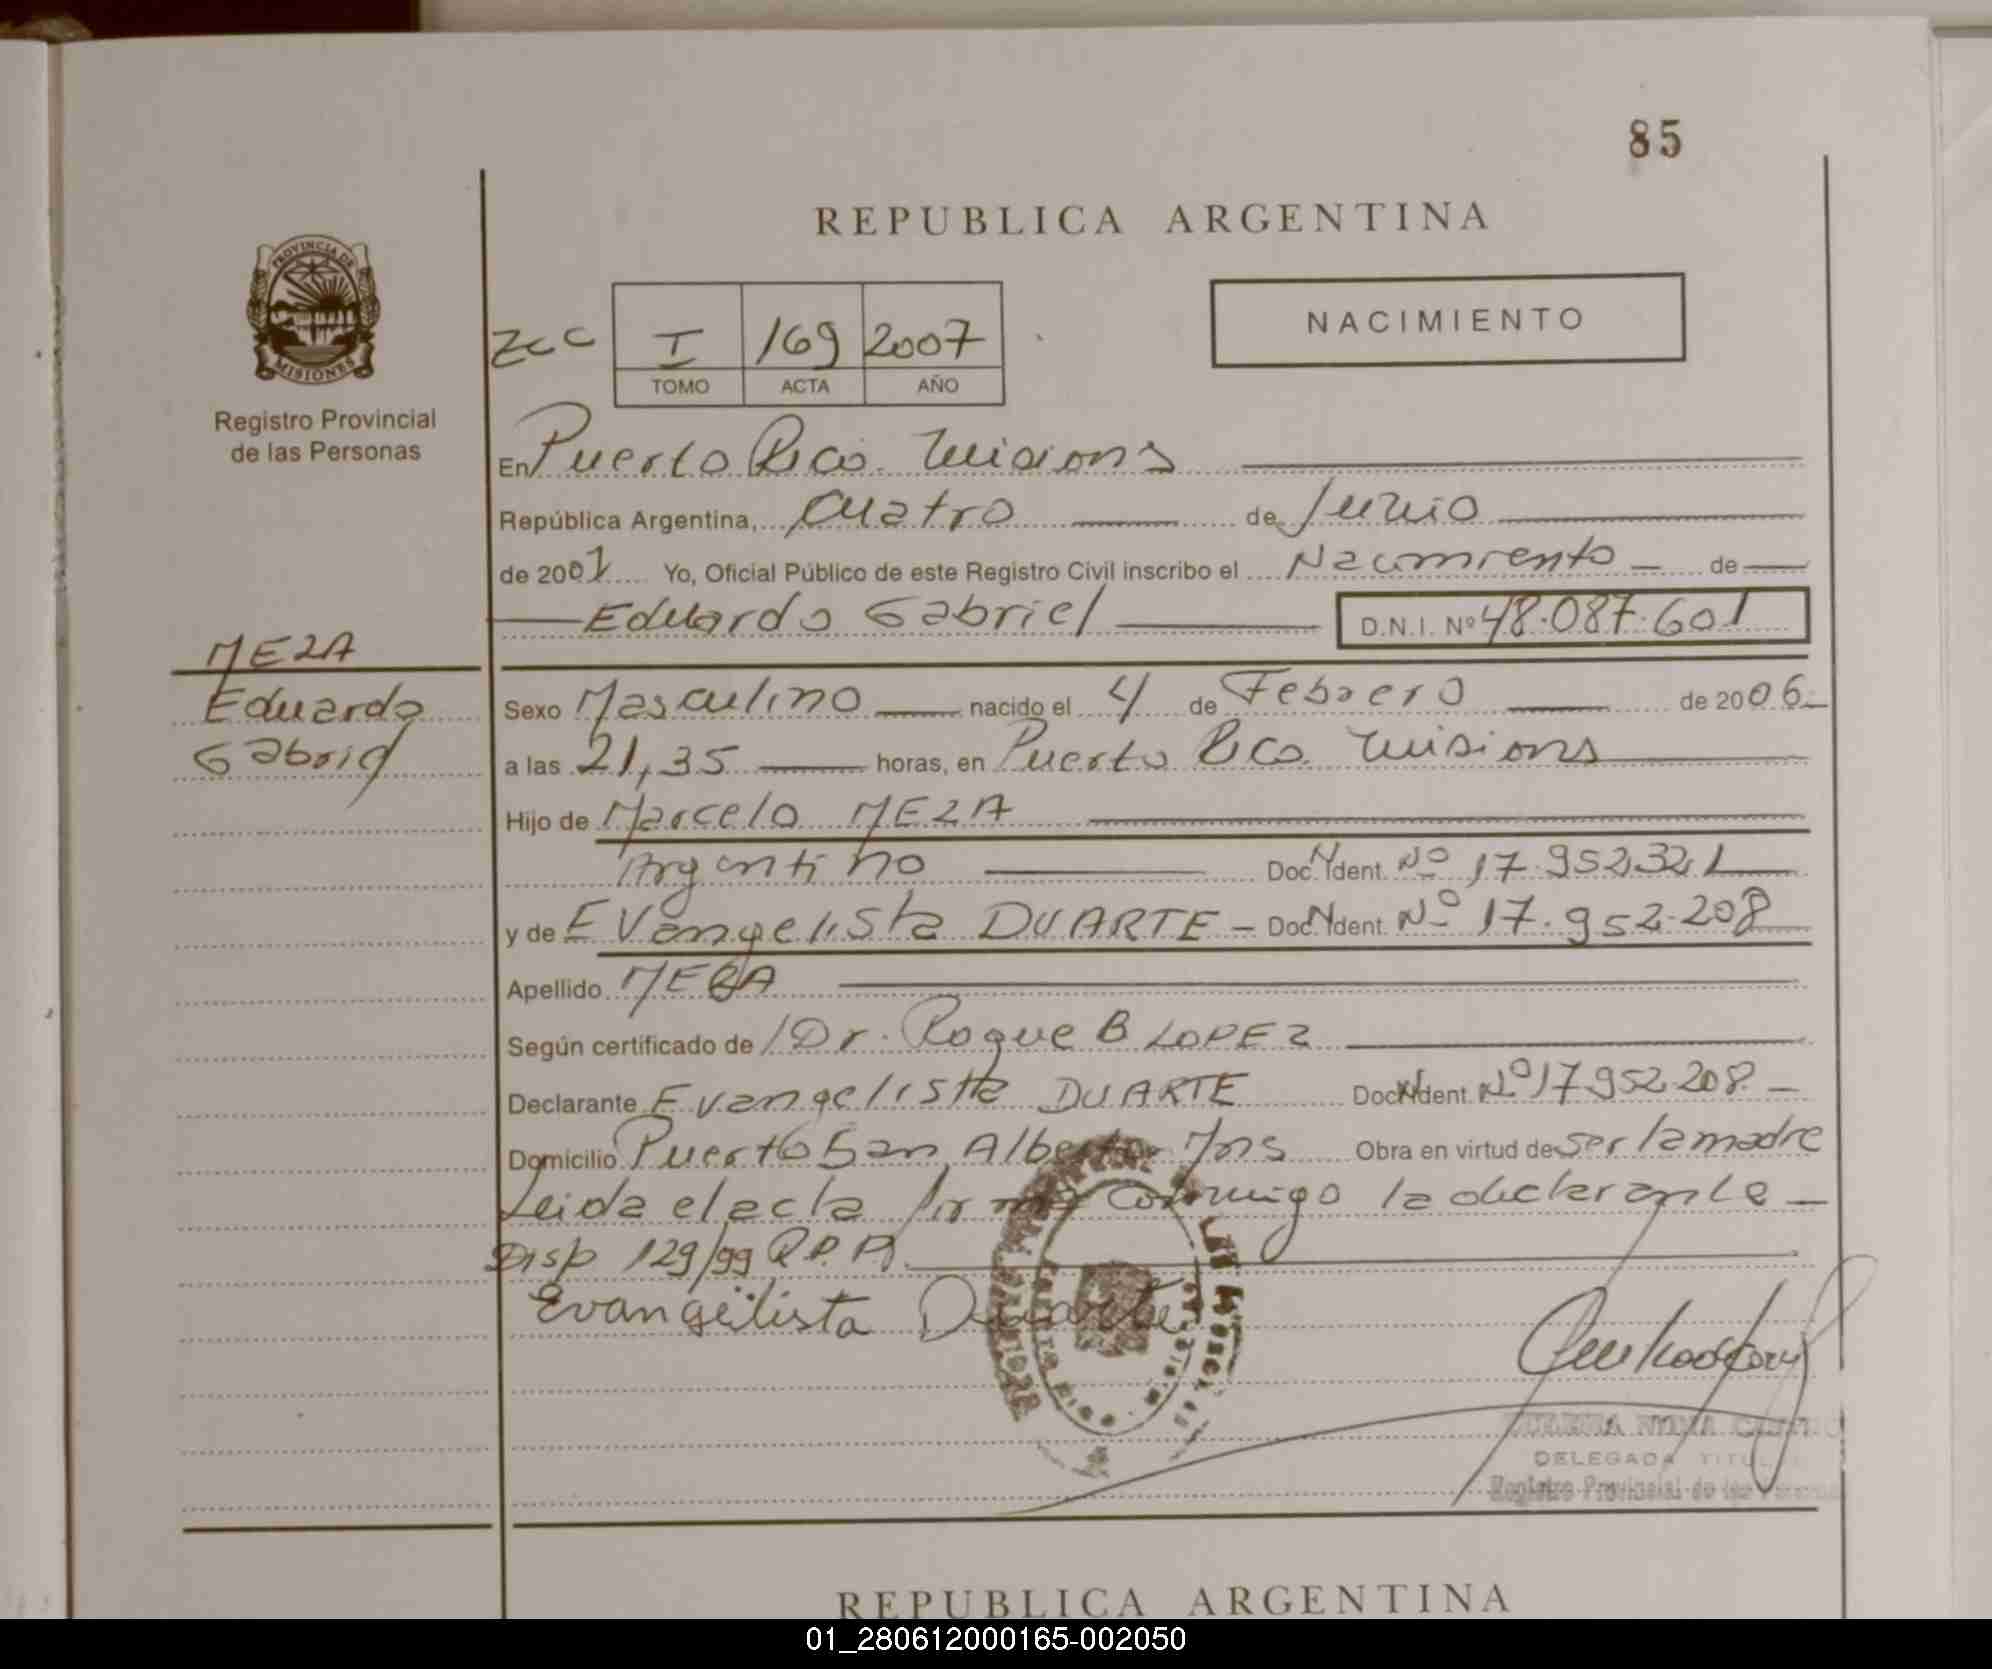 85
REPUBLICA ARGENTINA
PROVINCIA DE
MISIONES
Registro Provincial
de las Personas
I 169 2007
TOMO ACTA AÑO
NACIMIENTO
En Puerto Rico. Misions
República Argentina, Cuatro de Junio
de 2007 Yo, Oficial Público de este Registro Civil inscribo el Nacimiento de
Eduardo Gabriel D.N.I. Nº 48.087.601
MEZA
Eduardo
Gabriel
Sexo Masculino nacido el 4 de Febrero de 2006
a las 21,35 horas, en Puerto Rico. Misions
Hijo de Marcelo MEZA
Argentino Doc. Ident. Nº 17.952.321
y de Evangelista DUARTE - Doc. Ident. Nº 17.952.208
Apellido MEZA
Según certificado de Dr. Roque B LOPEZ
Declarante Evangelista DUARTE Doc. Ident. Nº 17952208
Domicilio Puerto San Alberto Mns Obra en virtud de ser la madre
Leida el acta firma conmigo la declarante
Disp 129/99 R.P.P.
Evangelista Duarte
DELEGADA TITULAR
Registro Provincial de las Personas
REPUBLICA ARGENTINA
01_280612000165-002050